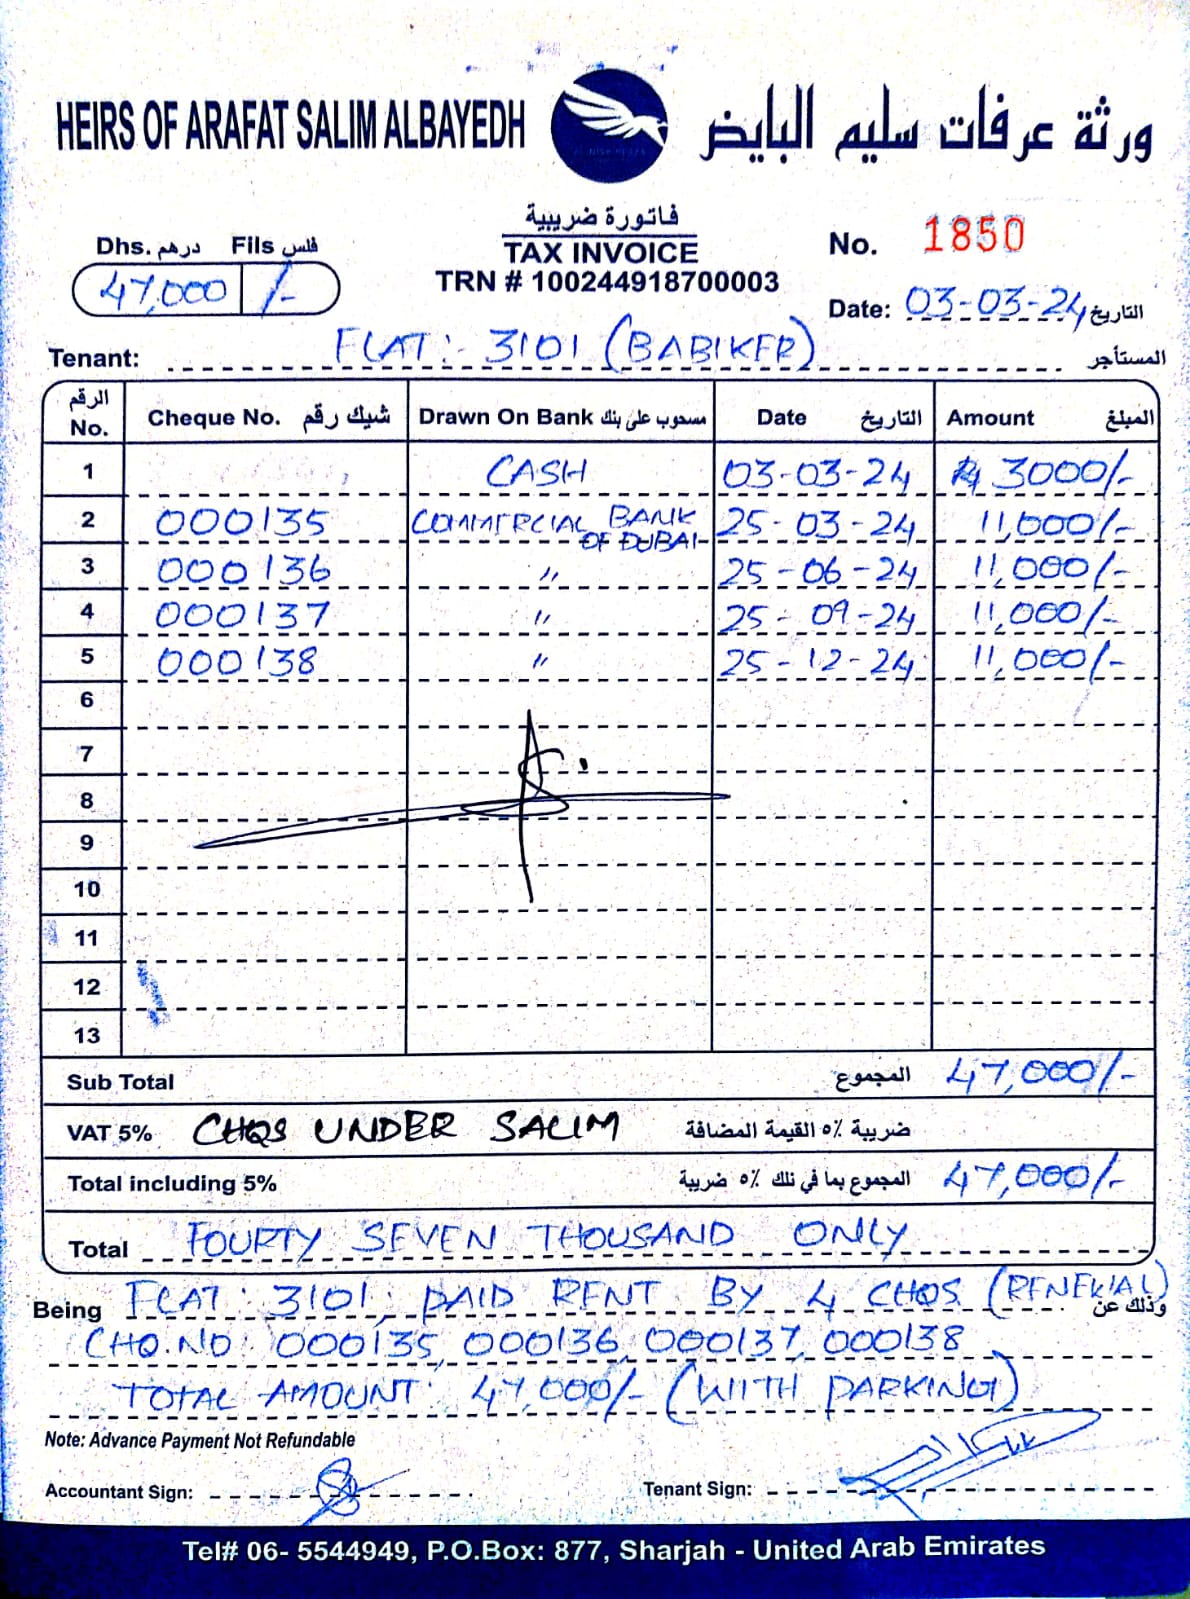 HEIRS OF ARAFAT SALIM ALBAYEDH ورثة عرفات سليم البايض
فاتورة ضريبية
TAX INVOICE
TRN # 100244918700003
Dhs. درهم Fils فلس
47,000 /-
No. 1850
Date: 03-03-24 التاريخ
Tenant: FLAT:- 3101 (BABIKER) المستأجر
الرقم No. Cheque No. شيك رقم Drawn On Bank مسحوب على بنك Date التاريخ Amount المبلغ
1 CASH 03-03-24 3000/-
2 000135 COMMERCIAL BANK OF DUBAI 25-03-24 11,000/-
3 000136 " 25-06-24 11,000/-
4 000137 " 25-09-24 11,000/-
5 000138 " 25-12-24 11,000/-
6
7
8
9
10
11
12
13
Sub Total المجموع 47,000/-
VAT 5% CHQS UNDER SALIM ضريبة ٥٪ القيمة المضافة
Total including 5% المجموع بما في ذلك ٥٪ ضريبة 47,000/-
Total FOURTY SEVEN THOUSAND ONLY
Being FLAT: 3101, PAID RENT BY 4 CHQS (RENEWAL) وذلك عن
CHQ.NO: 000135, 000136, 000137, 000138
TOTAL AMOUNT: 47,000/- (WITH PARKING)
Note: Advance Payment Not Refundable
Accountant Sign: Tenant Sign:
Tel# 06- 5544949, P.O.Box: 877, Sharjah - United Arab Emirates